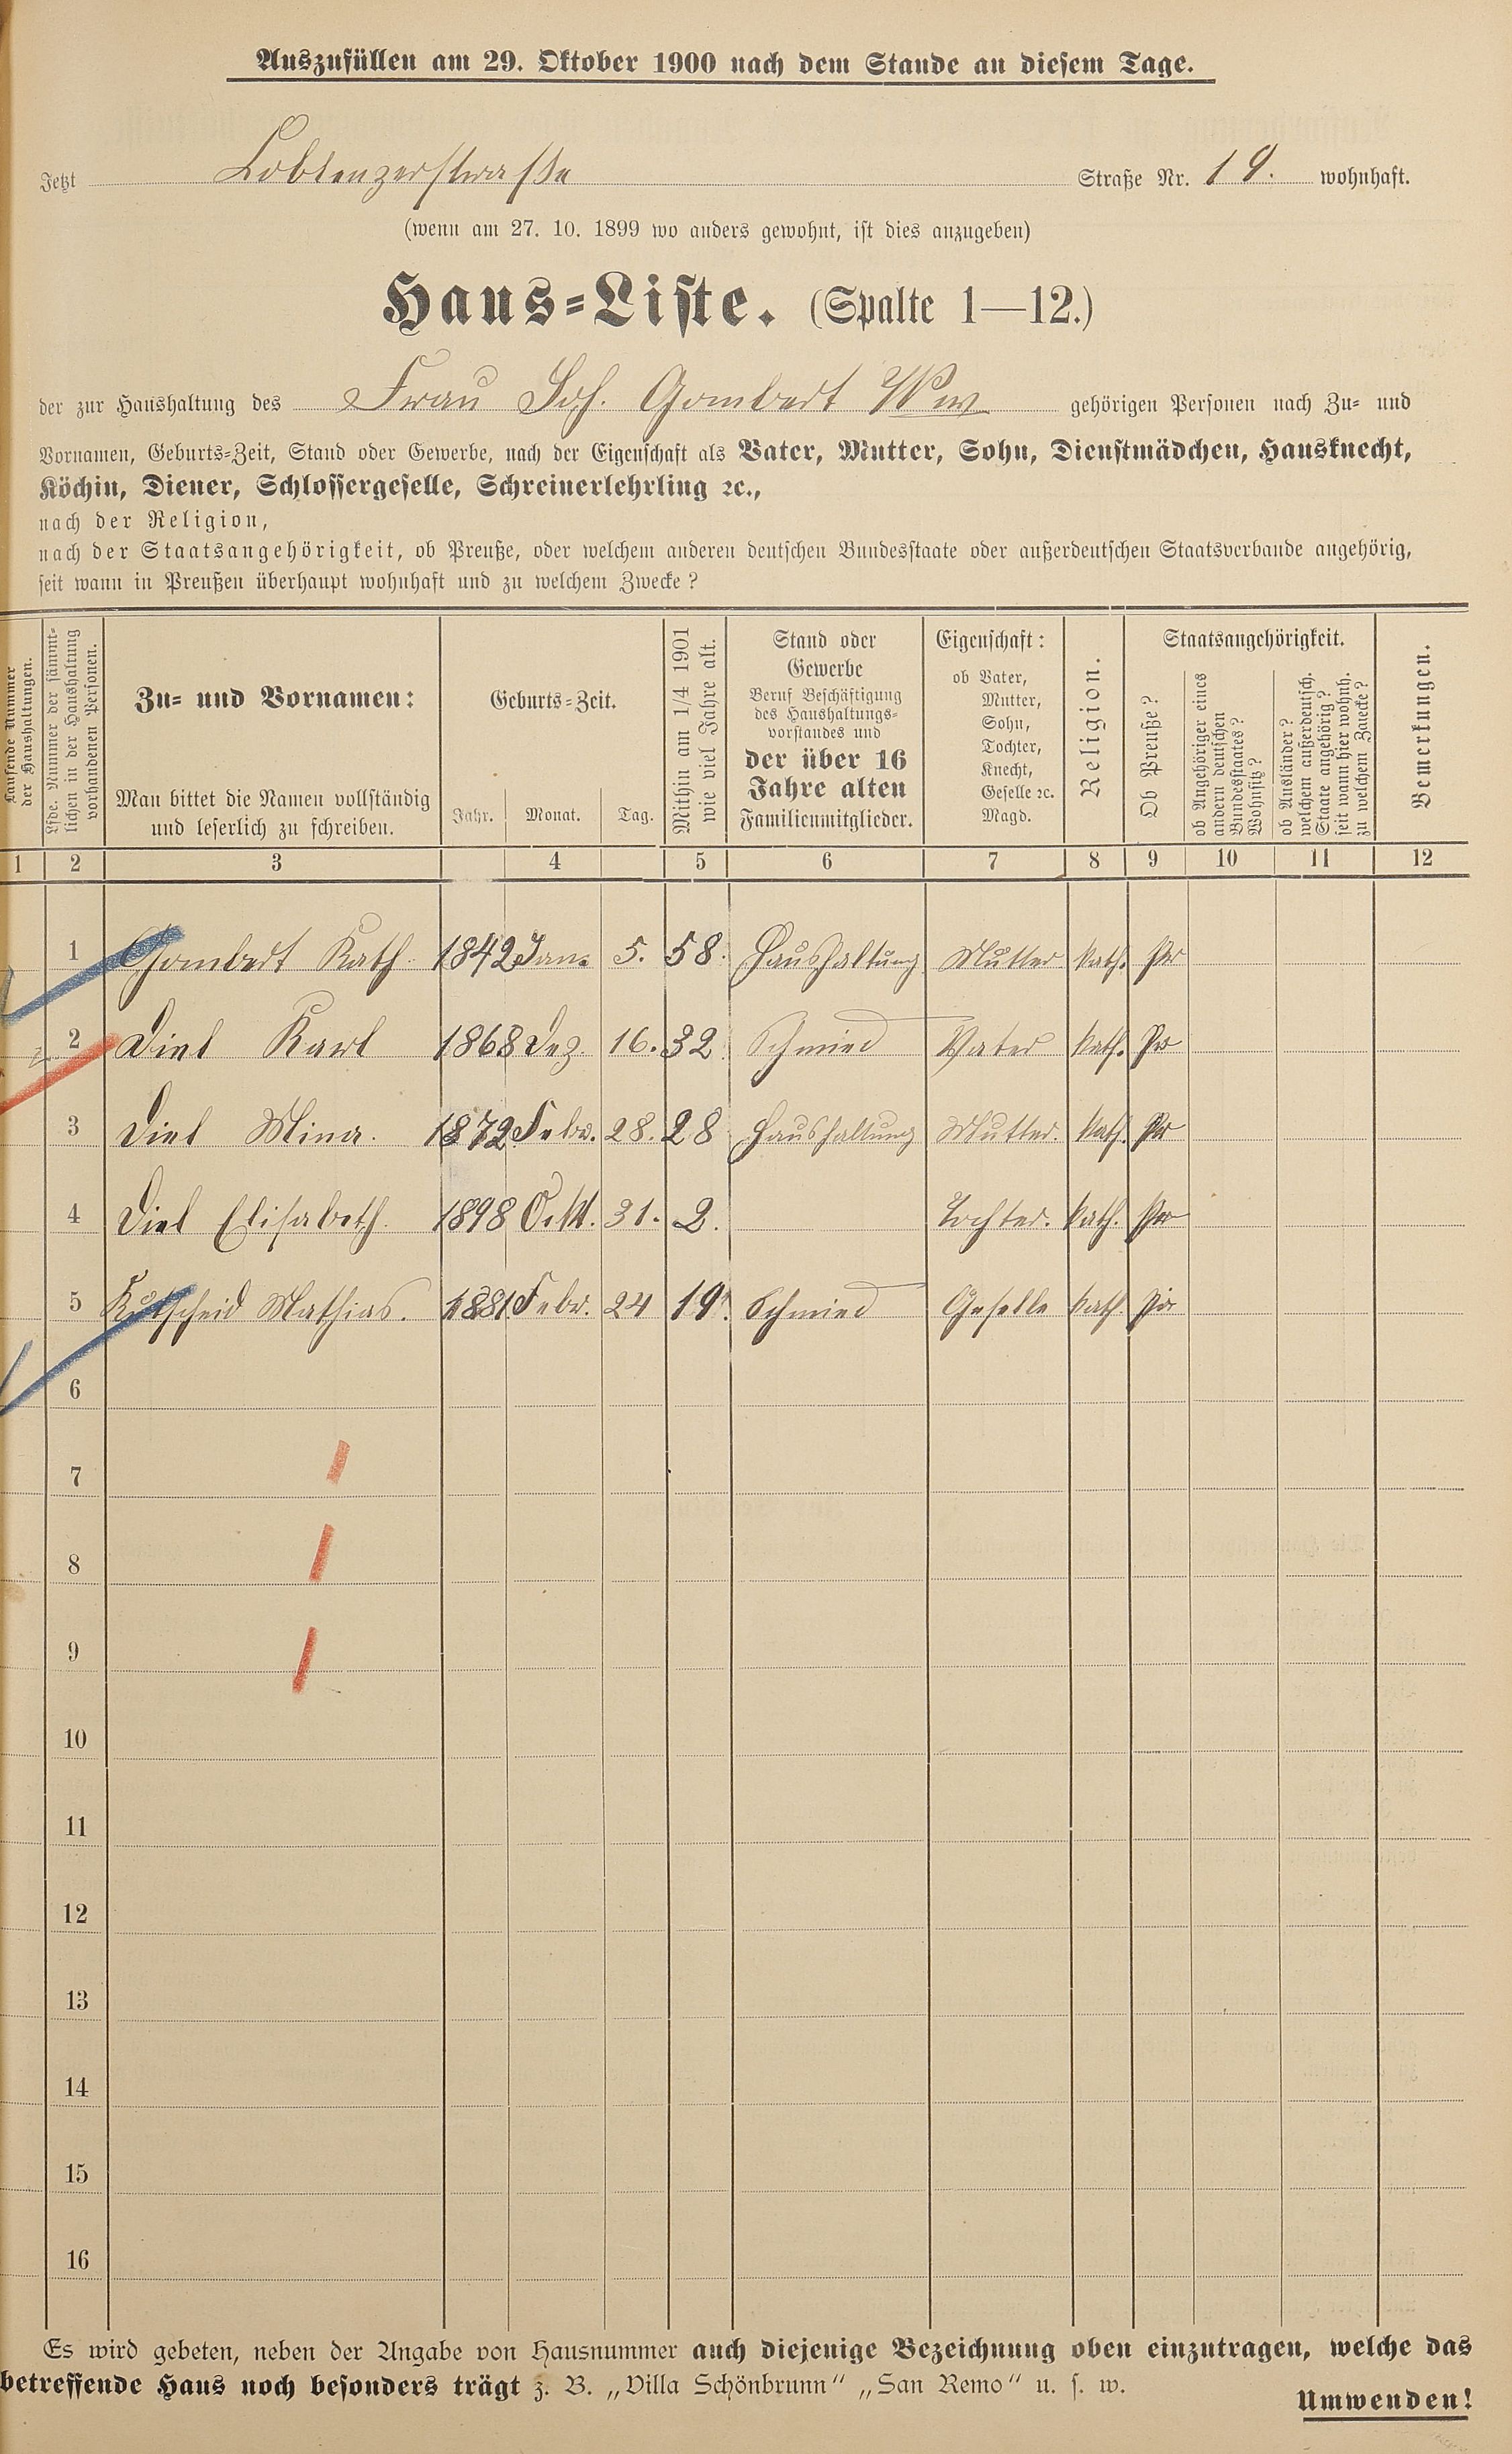 Auszufüllen am 29. Oktober 1900 nach dem Stande an diesem Tage.
Jetzt Coblenzerstrasse Straße Nr. 19. wohnhaft.
(wenn am 27. 10. 1899 wo anders gewohnt, ist dies anzugeben)
Haus-Liste. (Spalte 1—12.)
der zur Haushaltung des Frau Joh. Gombert Ww gehörigen Personen nach Zu- und
Vornamen, Geburts-Zeit, Stand oder Gewerbe, nach der Eigenschaft als Vater, Mutter, Sohn, Dienstmädchen, Hausknecht,
Köchin, Diener, Schlossergeselle, Schreinerlehrling ꝛc.,
nach der Religion,
nach der Staatsangehörigkeit, ob Preuße, oder welchem anderen deutschen Bundesstaate oder außerdeutschen Staatsverbande angehörig,
seit wann in Preußen überhaupt wohnhaft und zu welchem Zwecke?
Laufende Nummer
der Haushaltungen.
Lfde. Nummer der sämmt-
lichen in der Haushaltung
vorhandenen Personen.
Zu- und Vornamen:
Man bittet die Namen vollständig
und leserlich zu schreiben.
Geburts-Zeit.
Jahr. Monat. Tag.
Mithin am 1/4 1901
wie viel Jahre alt.
Stand oder
Gewerbe
Beruf Beschäftigung
des Haushaltungs-
vorstandes und
der über 16
Jahre alten
Familienmitglieder.
Eigenschaft:
ob Vater,
Mutter,
Sohn,
Tochter,
Knecht,
Geselle ꝛc.
Magd.
Religion.
Staatsangehörigkeit.
Ob Preuße?
ob Angehöriger eines
andern deutschen
Bundesstaates?
Wohnsitz?
ob Ausländer?
welchem außerdeutsch.
Staate angehörig?
seit wann hier wohnh.
zu welchem Zwecke?
Bemerkungen.
1 2 3 4 5 6 7 8 9 10 11 12
1 Gombert Kath. 1842 Jan. 5. 58. Haushaltung Mutter kath. Pr
2 Diel Karl 1868 Dez. 16. 32 Schmied Vater kath. Pr
3 Diel Mina. 1872 Febr. 28. 28 Haushaltung Mutter. kath. Pr
4 Diel Elisabeth. 1898 Ockt. 31. 2. Tochter. kath. Pr
5 Kutscheid Mathias. 1881. Febr. 24 19. Schmied Geselle kath. Pr
6
7
8
9
10
11
12
13
14
15
16
Es wird gebeten, neben der Angabe von Hausnummer auch diejenige Bezeichnung oben einzutragen, welche das
betreffende Haus noch besonders trägt z. B. „Villa Schönbrunn“ „San Remo“ u. s. w.
Umwenden!